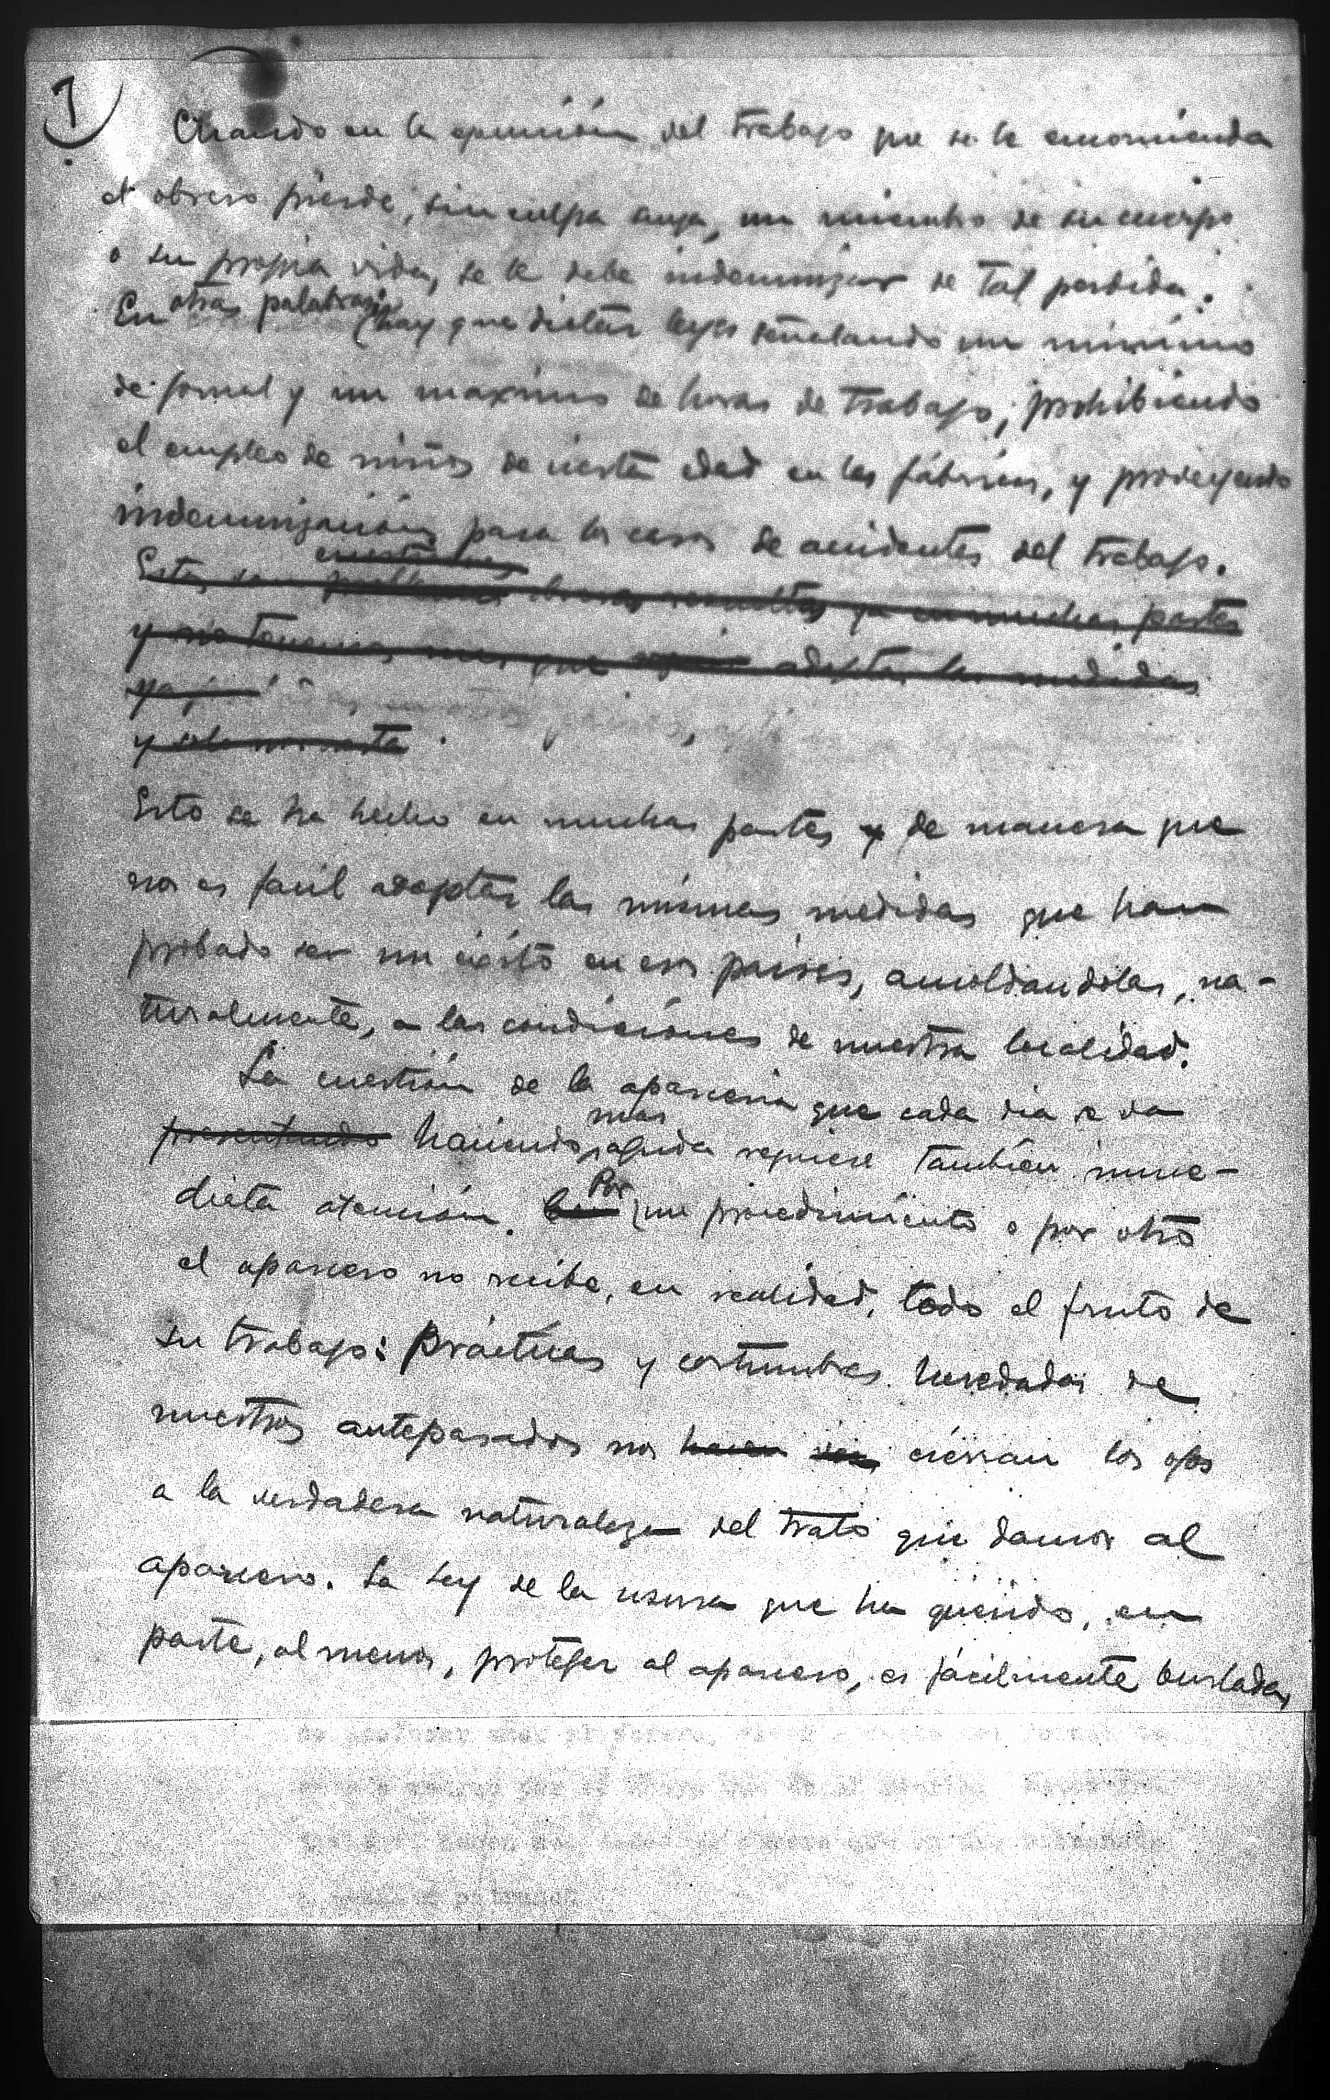 1
Cuando en la ejecución del trabajo que se le encomienda
el obrero pierde, sin culpa suya, un miembro de su cuerpo
o su propia vida, se le debe indemnizar de tal perdida.
En otras palabras: hay que dictar leyes señalando un mínimo
de jornal y un maximo de horas de trabajo; prohibiendo
el empleo de niños de cierta edad en las fábricas, y proveyendo
indemnización para los casos de accidentes del trabajo.
cuestiones
Estas son resueltas ya en muchas partes
y no tenemos mas que adoptar las medidas
ya
y
Esto se ha hecho en muchas partes y de manera que
nos es facil adoptar las mismas medidas que han
probado ser un éxito en esos paises, amoldandolas, na-
turalmente, a las condiciones de nuestra localidad.
La cuestión de la aparceria que cada dia se va
mas
presentando haciendo aguda requiere tambien inme-
diata atencion. Por un procedimiento o por otro
el aparcero no recibe, en realidad, todo el fruto de
su trabajo: Prácticas y costumbres heredadas de
nuestros antepasados nos hacen ver cierran los ojos
a la verdadera naturaleza del trato que damos al
aparcero. La Ley de la usura que ha querido, en
parte, al menos, proteger al aparcero, es fácilmente burlada,